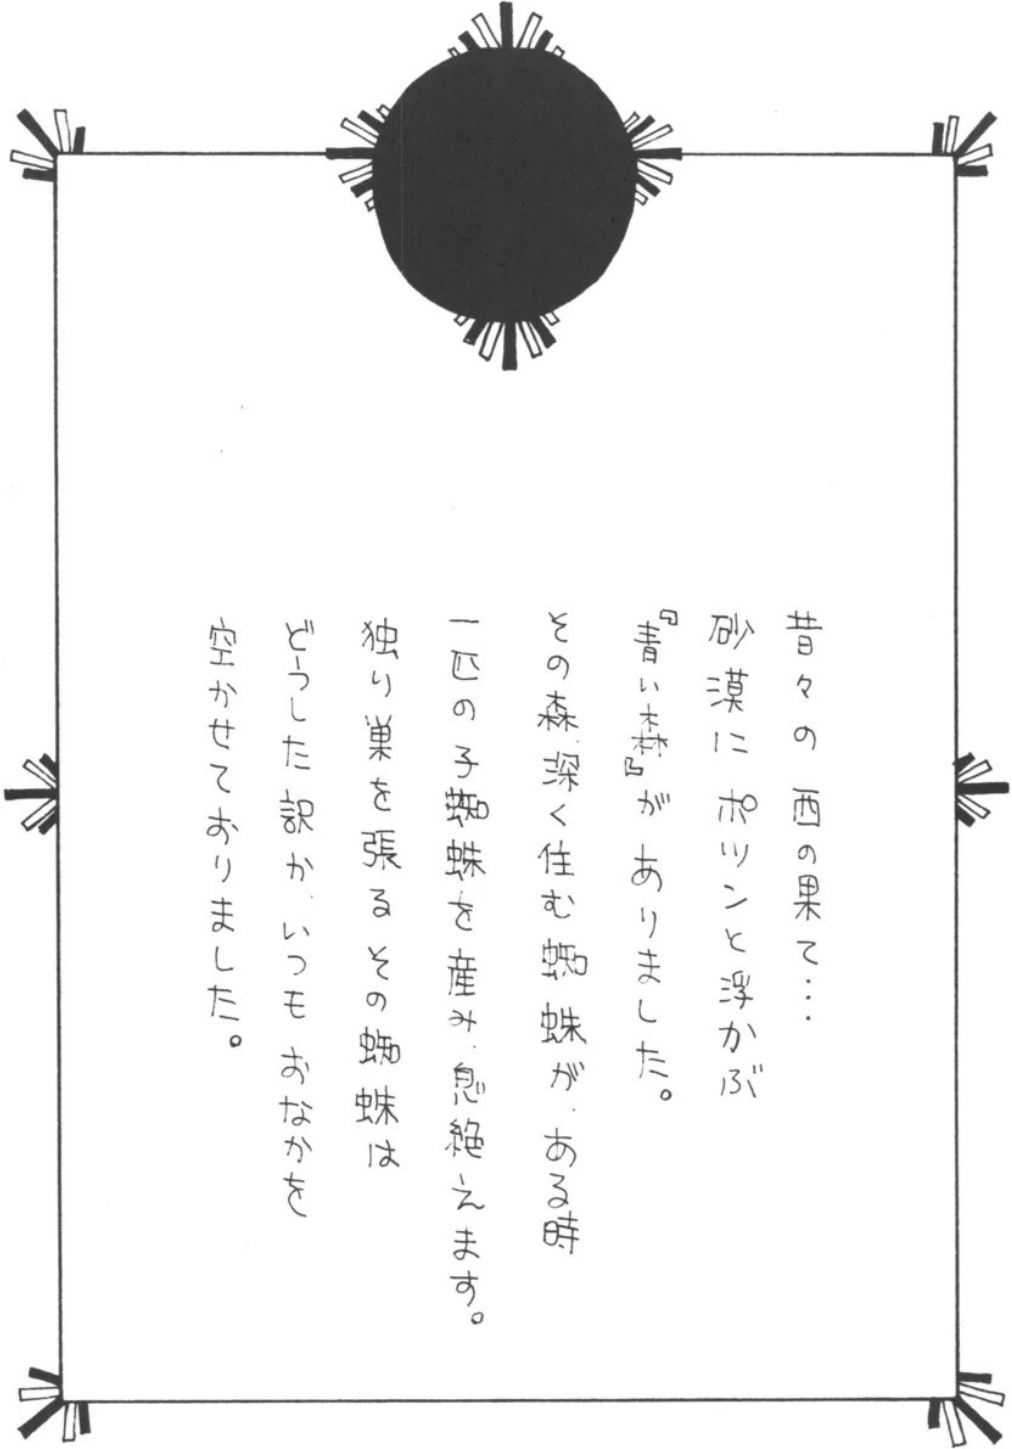 昔々の 西の果て・・・
砂漠に ポツンと浮かぶ
『青い森』が ありました。
その森深く住む蜘蛛が、ある時
一匹の子蜘蛛を産み、息絶えます。
独り巣を張るその蜘蛛は
どうした訳か、いつも おなかを
空かせておりました。